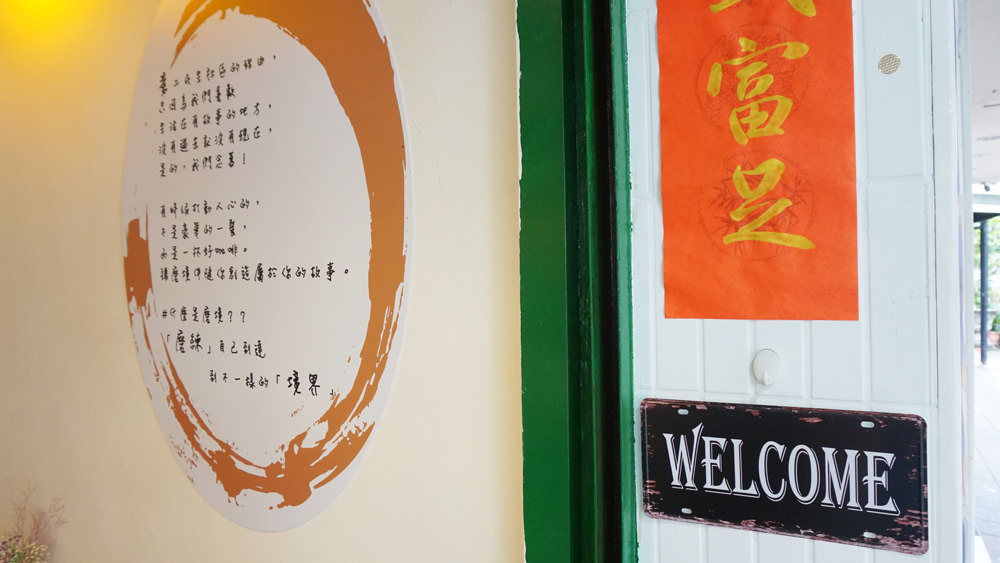 老社區的理由，
只因為我們喜歡
生活在有故事的地方，
沒有過去就沒有現在，
是的，我們念舊！
有時候打動人心的，
不是豪華的一餐，
而是一杯好咖啡。
讓磨境伴隨你創造屬於你的故事。
#什麼是磨境??
「磨練」自己到達
到不一樣的「境界」
富足
WELCOME